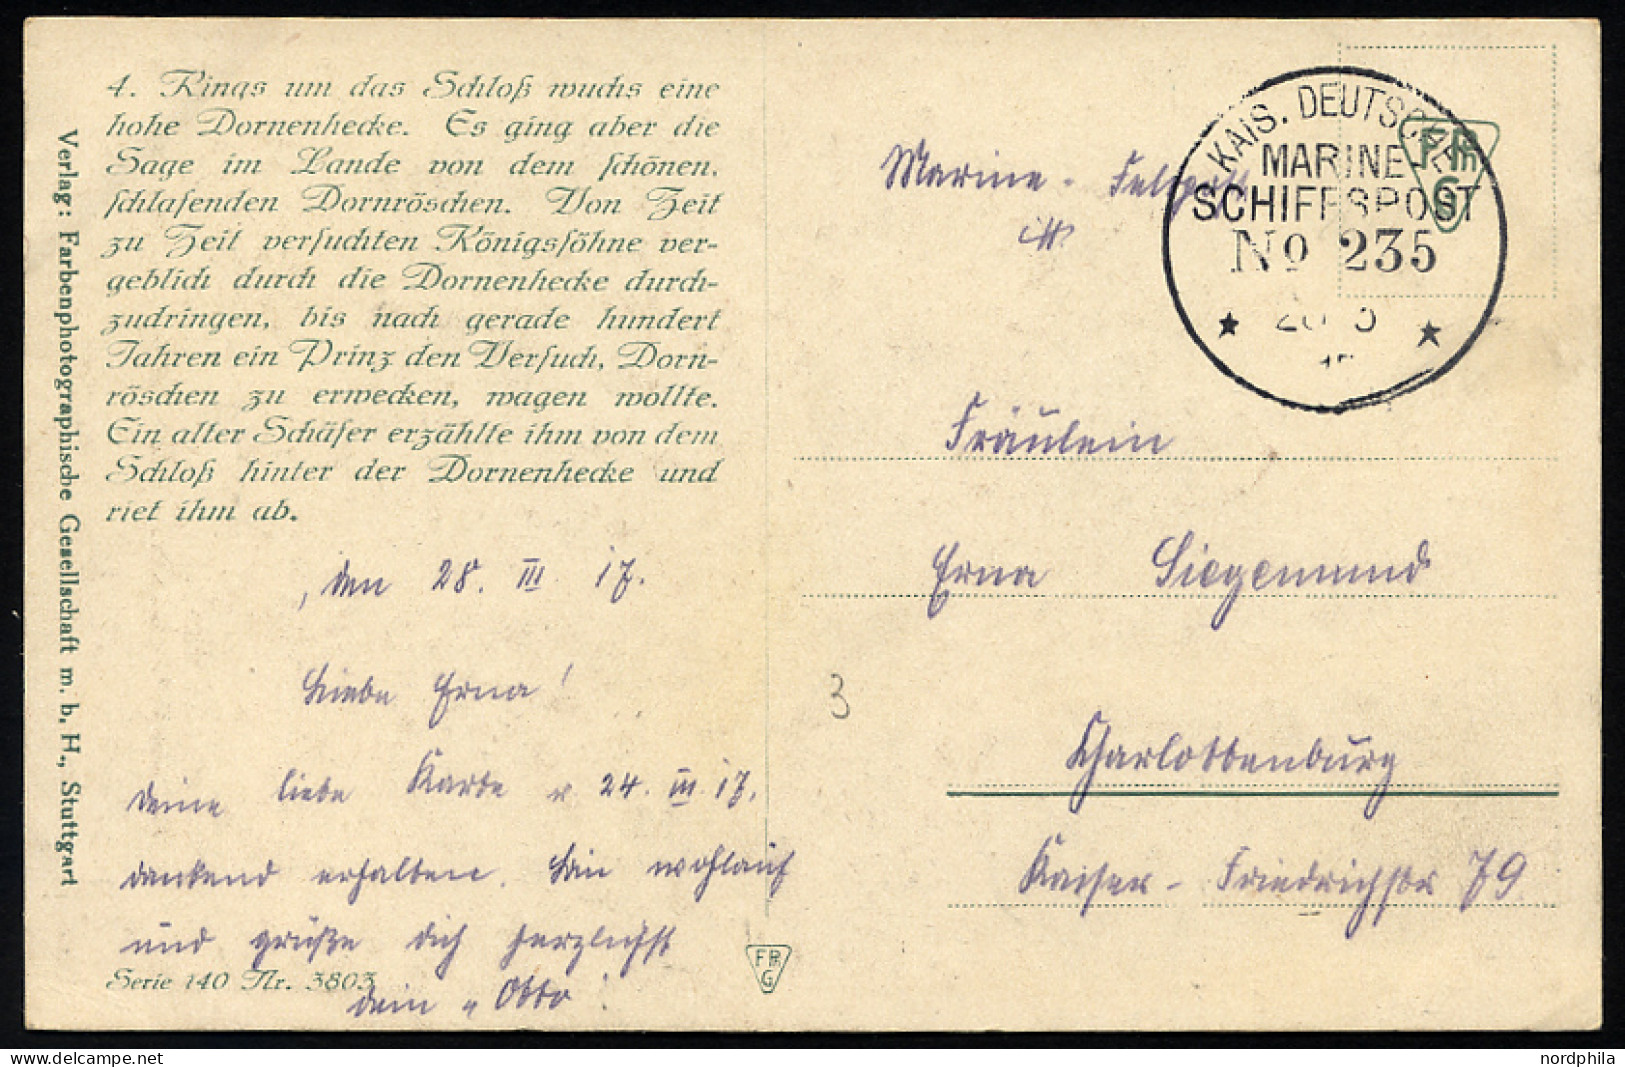 4. Rings um das Schloß wuchs eine
hohe Dornenhecke. Es ging aber die
Sage im Lande von dem schönen,
schlafenden Dornröschen. Von Zeit
zu Zeit versuchten Königssöhne ver-
geblich durch die Dornenhecke durch-
zudringen, bis nach gerade hundert
Jahren ein Prinz den Versuch, Dorn-
röschen zu erwecken, wagen wollte.
Ein alter Schäfer erzählte ihm von dem
Schloß hinter der Dornenhecke und
riet ihm ab.
Verlag: Farbenphotographische Gesellschaft m. b. H., Stuttgart
den 28. III. 17.
Liebe Erna!
Deine liebe Karte v. 24. III. 17.
dankend erhalten. Bin wohlauf
und grüße dich herzlichst
Serie 140 Nr. 3803
dein "Otto"
FPhG
Marine-Feldpost
KAIS. DEUTSCHE
MARINE
SCHIFFSPOST
No 235
FPhG
Fräulein
Erna Siegemund
3
Charlottenburg
Kaiser-Friedrichstr 79
nordphila